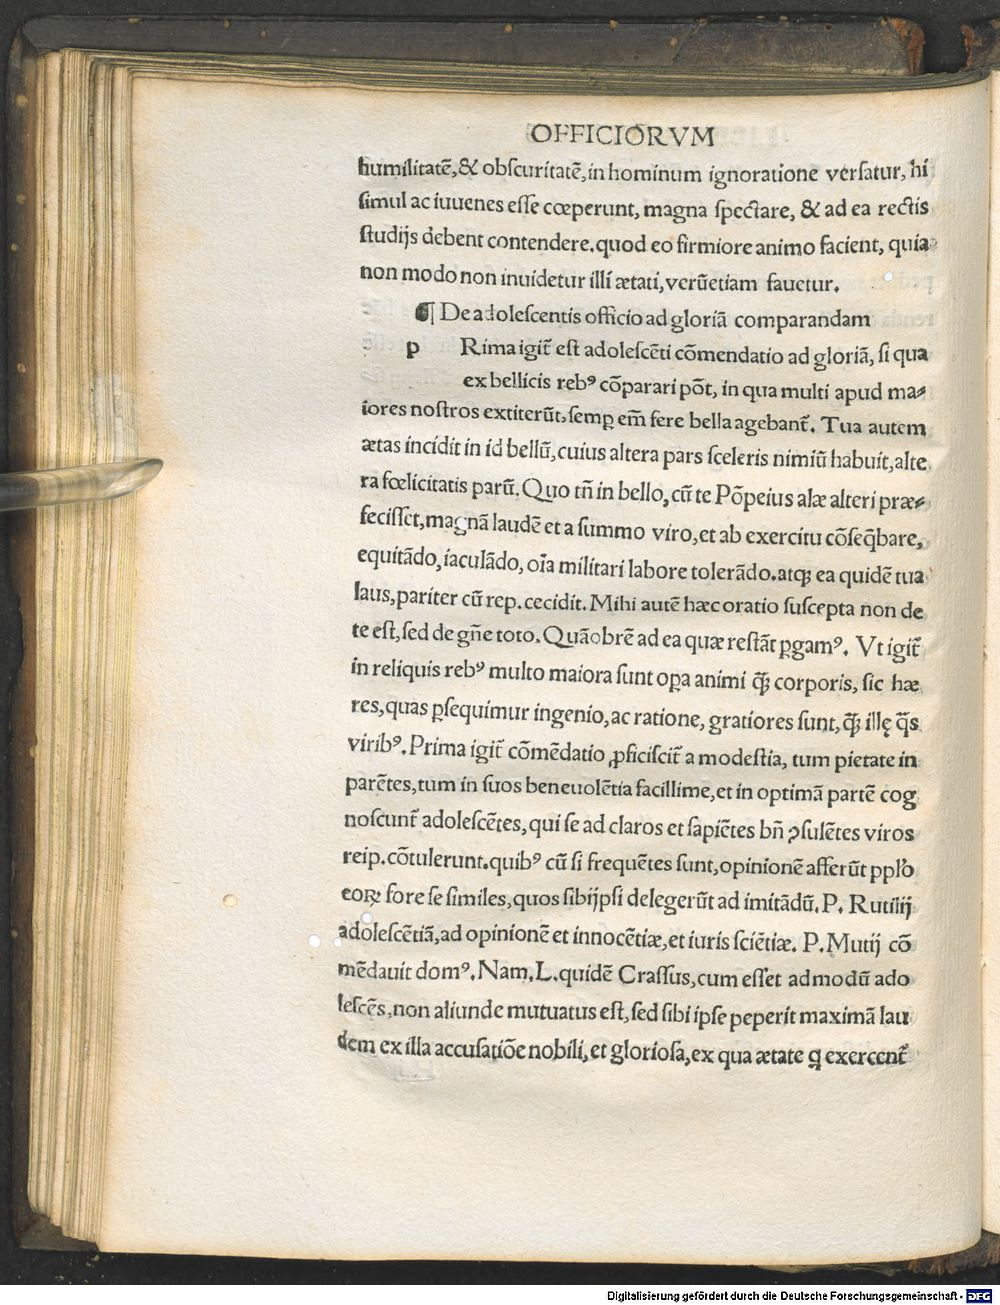 OFFICIORVM
humilitatē,& obſcuritatē,in hominum ignoratione verſatur, hi
ſimul ac iuuenes eſſe cœperunt, magna ſpectare, & ad ea rectis
ſtudijs debent contendere.quod eo firmiore animo facient, quia
non modo non inuidetur illi ætati,verūetiam fauetur.
¶ De adoleſcentis officio ad gloriā comparandam
p Rima igit᷑ eſt adoleſcēti cōmendatio ad gloriā, ſi qua
ex bellicis rebꝰ cōparari pōt, in qua multi apud ma⸗
iores noſtros extiterūt,ſemꝑ em̄ fere bella agebant᷑. Tua autem
ætas incidit in id bellū,cuius altera pars ſceleris nimiū habuit,alte
ra fœlicitatis parū.Quo tn̄ in bello,cū te Pōpeius alæ alteri præ⸗
feciſſet,magnā laudē et a ſummo viro,et ab exercitu cōſeq̄bare,
equitādo,iaculādo, oīa militari labore tolerādo.atqꝫ ea quidē tua
laus,pariter cū rep.cecidit.Mihi autē hæc oratio ſuſcepta non de
te eſt,ſed de gn̄e toto.Quāobrē ad ea quæ reſtāt ꝑgamꝰ. Vt igit᷑
in reliquis rebꝰ multo maiora ſunt oꝑa animi q̄ꝫ corporis, ſic hæ
res,quas ꝑſequimur ingenio,ac ratione, gratiores ſunt,q̄ꝫ illę q̄s
viribꝰ.Prima igit᷑ cōmēdatio ꝓficiſcit᷑ a modeſtia, tum pietate in
parētes,tum in ſuos beneuolētia facillime,et in optimā partē cog
noſcunt᷑ adoleſcētes,qui ſe ad claros et ſapiētes bn̄ ꝯſulētes viros
reip.cōtulerunt.quibꝰ cū ſi frequētes ſunt,opinionē afferūt pplo
eoꝝ fore ſe ſimiles,quos ſibijpſi delegerūt ad imitādū.P. Rutilij
adoleſcētiā,ad opinionē et innocētiæ,et iuris ſciētiæ. P.Mutij cō
mēdauit domꝰ.Nam.L.quidē Craſſus,cum eſſet admodū ado
leſcēs,non aliunde mutuatus eſt,ſed ſibi ipſe peperit maximā lau
dem ex illa accuſatiōe nobili,et glorioſa,ex qua ætate q exercent᷑
Digitalisierung gefördert durch die Deutsche Forschungsgemeinschaft - DFG